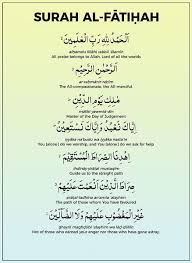 SURAH AL-FĀTIḤAH
ٱلْحَمْدُ لِلَّهِ رَبِّ ٱلْعَٰلَمِينَ
alḥamdu lillāhi rabbil 'ālamīn
All praise belongs to Allah, Lord of all the worlds
ٱلرَّحْمَٰنِ ٱلرَّحِيمِ
ar-raḥmānir raḥīm
The All-compassionate, the All-merciful
مَٰلِكِ يَوْمِ ٱلدِّينِ
yawmid dīn
Master of the Day of Judgement
إِيَّاكَ نَعْبُدُ وَإِيَّاكَ نَسْتَعِينُ
iyyāka na'budu wa iyyāka nasta'īn
You (alone) do we worship, and You (alone) do we ask for help
ٱهْدِنَا ٱلصِّرَٰطَ ٱلْمُسْتَقِيمَ
mustaqīm
Guide us to the straight path
صِرَٰطَ ٱلَّذِينَ أَنْعَمْتَ عَلَيْهِمْ
an'amta 'alayhim
The path of those whom You have favoured
غَيْرِ ٱلْمَغْضُوبِ عَلَيْهِمْ وَلَا ٱلضَّآلِّينَ
ghayril maghḍūbi 'alayhim wa
Not of those who earned your anger nor those who have gone astray.